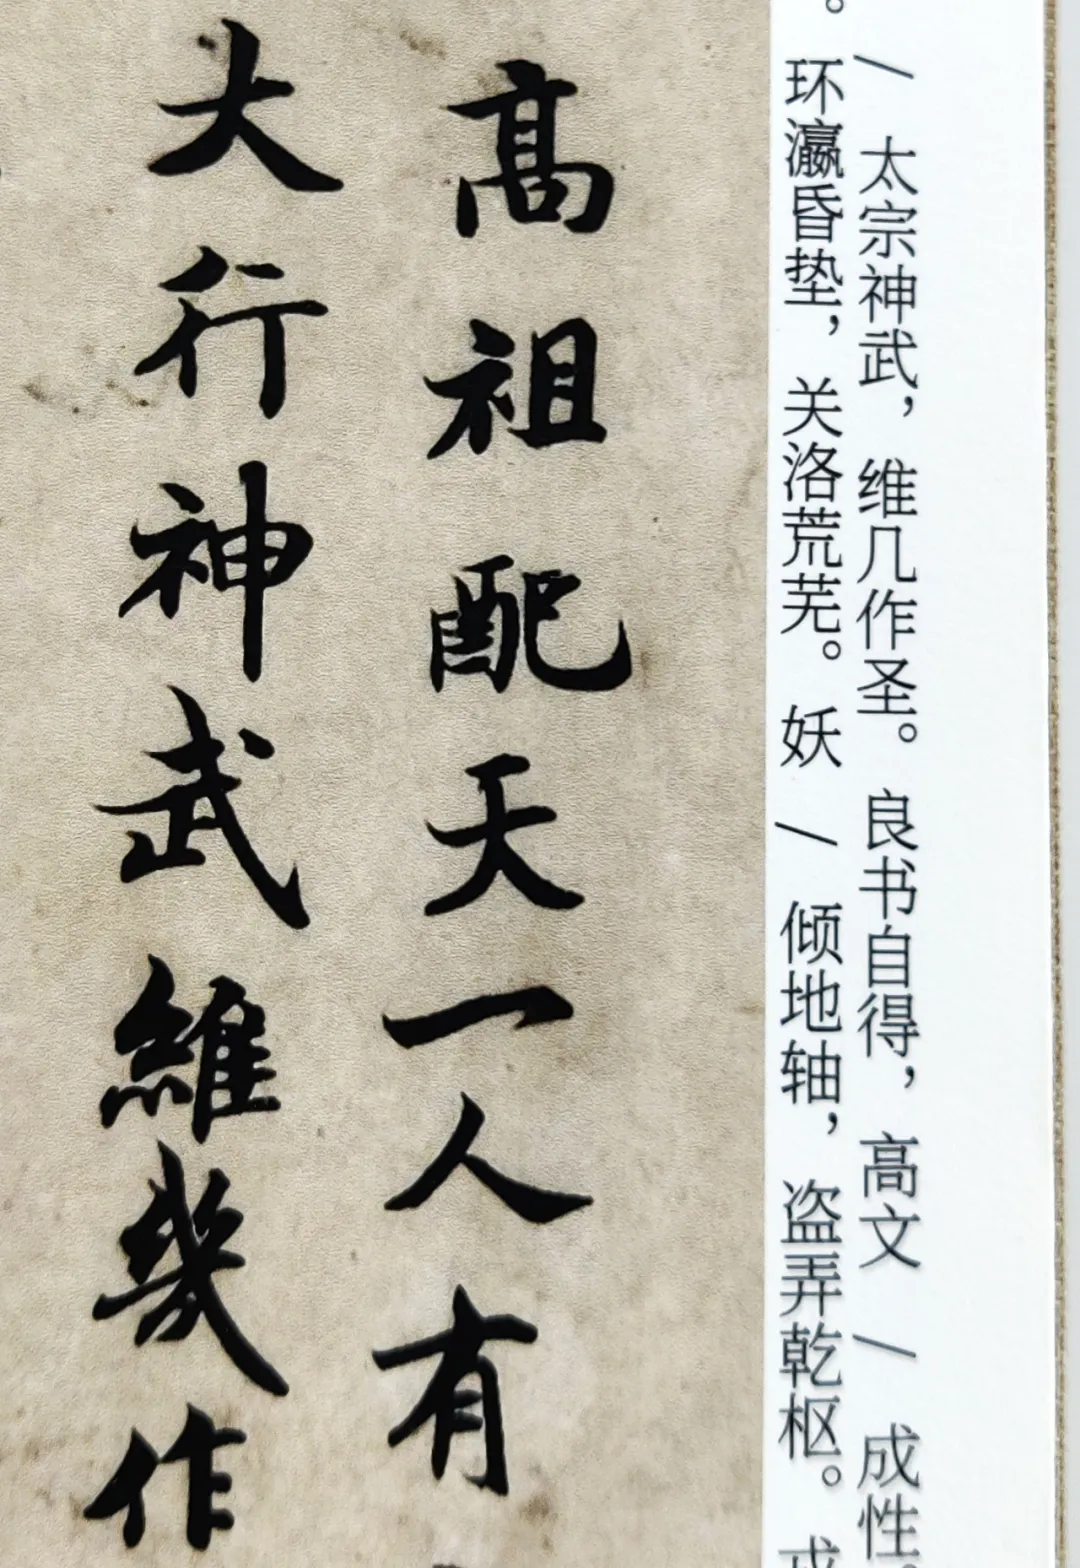 / 太宗神武，维几作圣。良书自得，高文 / 成性
。环瀛昏垫，关洛荒芜。妖 / 倾地轴，盗弄乾枢。
高祖配天一人有
大行神武維幾作